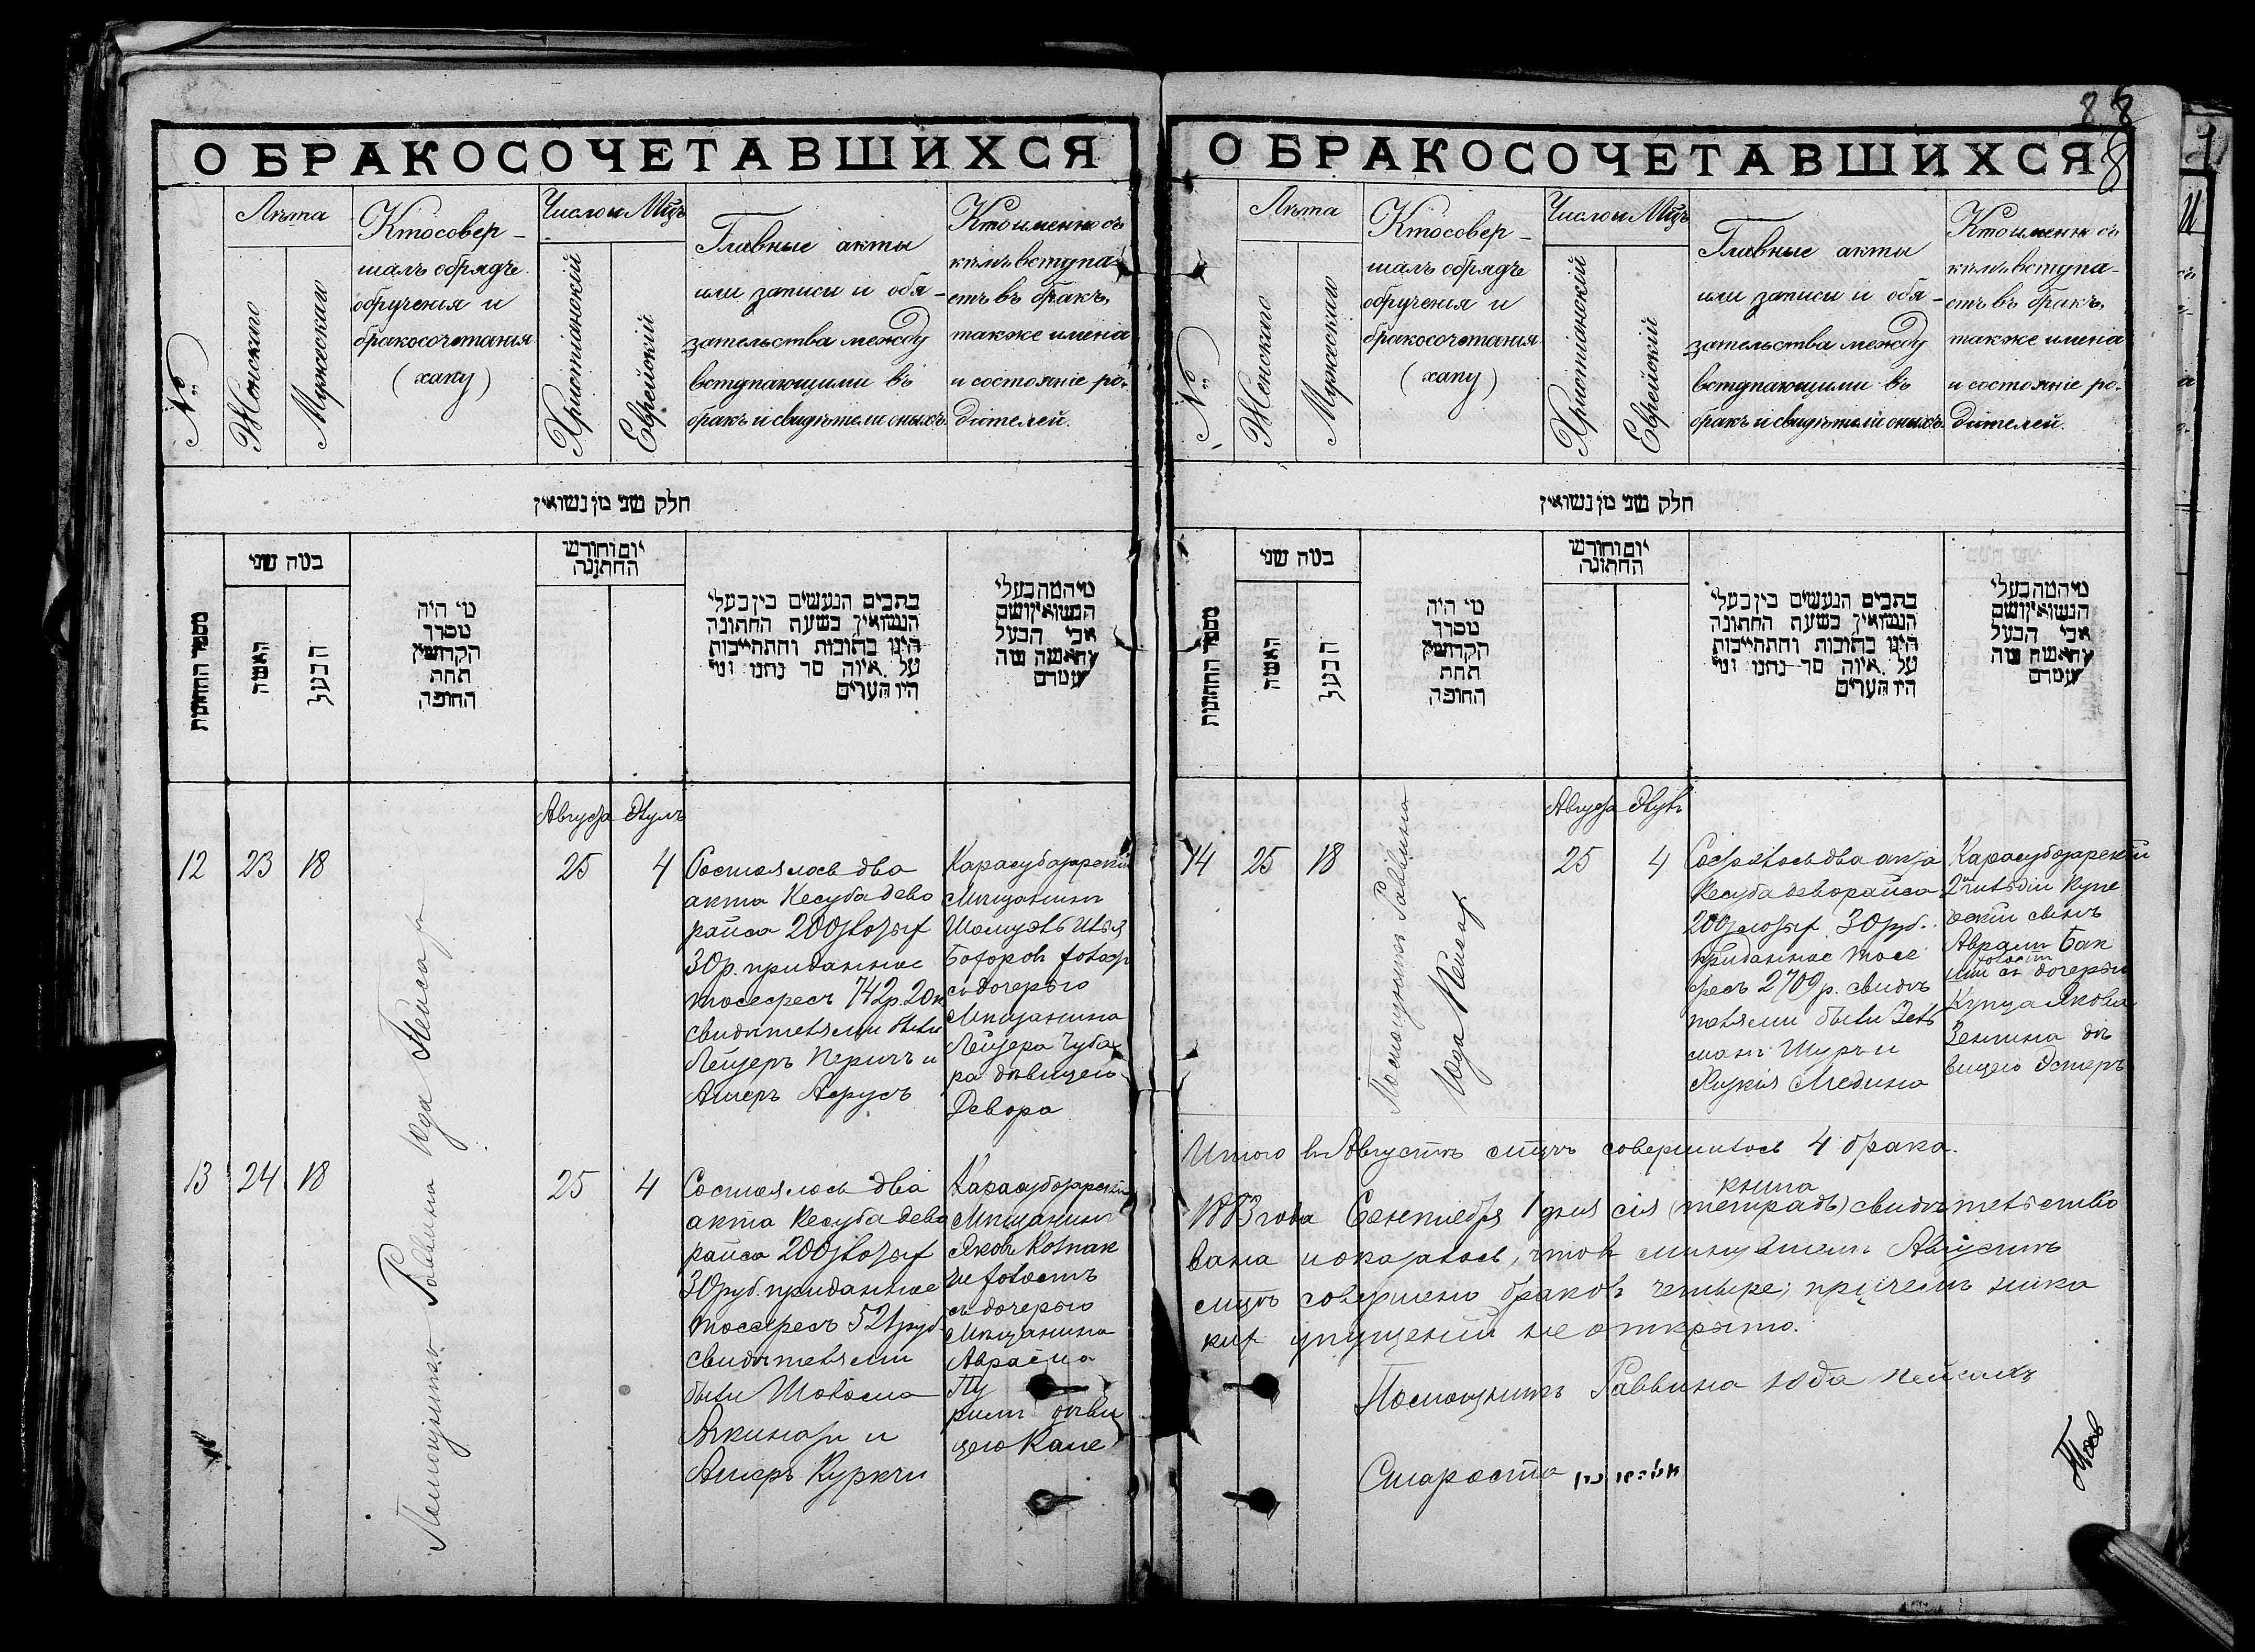 О БРАКОСОЧЕТАВШИХСЯ
№
Лѣта
Женскаго
Мужескаго
Кто совер-
шалъ обрядъ
обрученія и
бракосочетания
(хапу)
Число и Мцъ
Христіанскій
Еврейскій
Главные акты
или записи и обя-
зательства между
вступающими въ
бракъ и свидѣтели оныхъ.
Кто именно съ
кѣмъ вступа-
етъ въ бракъ,
также имена
и состояніе ро-
дителей.
חלק שני מן נשואין
מספר החתונות
במה שני
האשה
הבעל
מי היה
מסדר
הקדושין
תחת
החופה
יום וחודש
החתונה
כתבים הנעשים בין בעלי
הנשואין בשעת החתונה
היינו כתובות והתחייבות
על איזה סך נתנו ומי
היו העדים
מי המה בעלי
הנשואין ושם
אבי הבעל
והאשה ומה
מעמדם
Августа Элулъ
12 23 18
25 4
Состоялось два
акта Кесуба дево
райса 200 золотыхъ
30 р. приданное
тосефесъ 742 р. 20 к
свидѣтелями были
Лейзеръ Перичъ и
Ашеръ
Карасубазарскій
Мѣщанинъ
Шомуэль Илья
холост
съ дочерью
Мѣщанина
Лейзера Чуба
ра дѣвицею
Девора
13 24 18
25 4
Состоялось два
акта Кесуба дево
райса 200 золотыхъ
30 руб. приданное
тосефесъ 521 руб.
свидѣтелями
были Шолома
и
Ашеръ Куркчи
Карасубазарскій
Мѣщанинъ
Яковъ Колпак
чи холостъ
съ дочерью
Мѣщанина
Авраама
Пу
римъ дѣви
цею
Помощникъ Раввина Юда Пейсахъ
88
8
О БРАКОСОЧЕТАВШИХСЯ
№
Лѣта
Женскаго
Мужескаго
Кто совер-
шалъ обрядъ
обрученія и
бракосочетания
(хапу)
Число и Мцъ
Христіанскій
Еврейскій
Главные акты
или записи и обя-
зательства между
вступающими въ
бракъ и свидѣтели оныхъ.
Кто именно съ
кѣмъ вступа-
етъ въ бракъ,
также имена
и состояніе ро-
дителей.
חלק שני מן נשואין
מספר החתונות
במה שני
האשה
הבעל
מי היה
מסדר
הקדושין
תחת
החופה
יום וחודש
החתונה
כתבים הנעשים בין בעלי
הנשואין בשעת החתונה
היינו כתובות והתחייבות
על איזה סך נתנו ומי
היו העדים
מי המה בעלי
הנשואין ושם
אבי הבעל
והאשה ומה
מעמדם
Августа Элулъ
14 25 18
25 4
Состоялось два акта
Кесуба деворайса
200 золотыхъ 30 руб.
приданное тосе
фесъ 2709 р. свидѣ
телями были Зель
манъ Шуръ и
Медина
Карасубазарскій
2й гильдіи Купе
ческій сынъ
Авраамъ Бак
шй холостъ съ дочерью
Купца Якова
Зенгина дѣ
вицею Эстеръ
Помощникъ Раввина
Юда Пейсах
Итого въ Августѣ мцѣ совершилось 4 брака.
1883 года Сентября 1 дня сія (тетрадь) книга свидѣтельство
вана и оказалось, что въ минувшемъ Августѣ
мцѣ совершено браковъ четыре; причемъ ника
кихъ упущеній не открыто.
Помощникъ Раввина Юда Пейсахъ
Староста